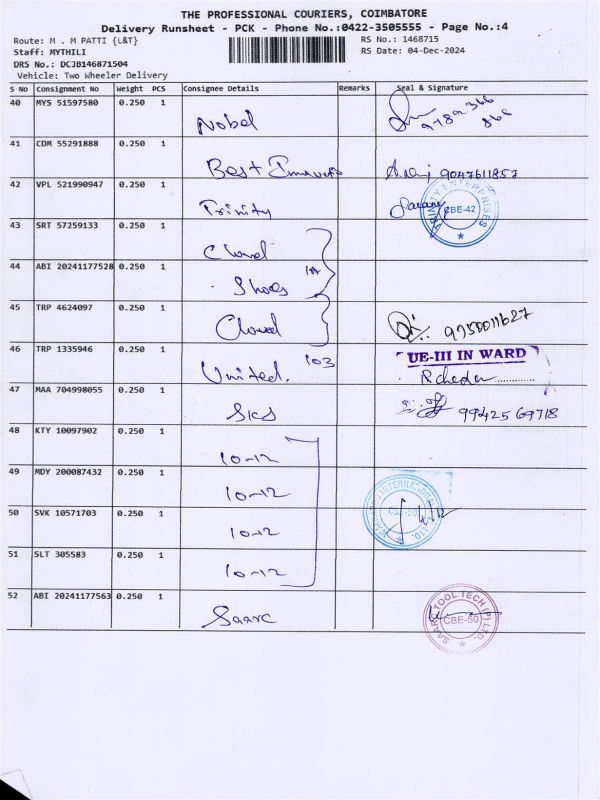 THE PROFESSIONAL COURIERS, COIMBATORE
Delivery Runsheet - PCK - Phone No.:0422-3505555 - Page No.:4
Route: M . M PATTI {L&T} RS No.: 1468715
Staff: MYTHILI RS Date: 04-Dec-2024
DRS No.: DCJB146871504
Vehicle: Two Wheeler Delivery
S No Consignment No Weight PCS Consignee Details Remarks Seal & Signature
40 MYS 51597580 0.250 1 Nobel
41 CDM 55291888 0.250 1 Best 9047611857
42 VPL 521990947 0.250 1 Trinity TRINITY ENTERPRISES CBE-42
43 SRT 57259133 0.250 1 Cloud
44 ABI 20241177528 0.250 1 Shoes
45 TRP 4624097 0.250 1 Cloud 9750011627
46 TRP 1335946 0.250 1 United. 103 UE-III IN WARD
47 MAA 704998055 0.250 1 SKS 99425 69718
48 KTY 10097902 0.250 1 10-12
49 MDY 200087432 0.250 1 10-12
50 SVK 10571703 0.250 1 10-12 INTERNATIONAL
51 SLT 305583 0.250 1 10-12
52 ABI 20241177563 0.250 1 Saarc TOOL TECH (P) LTD. CBE-50